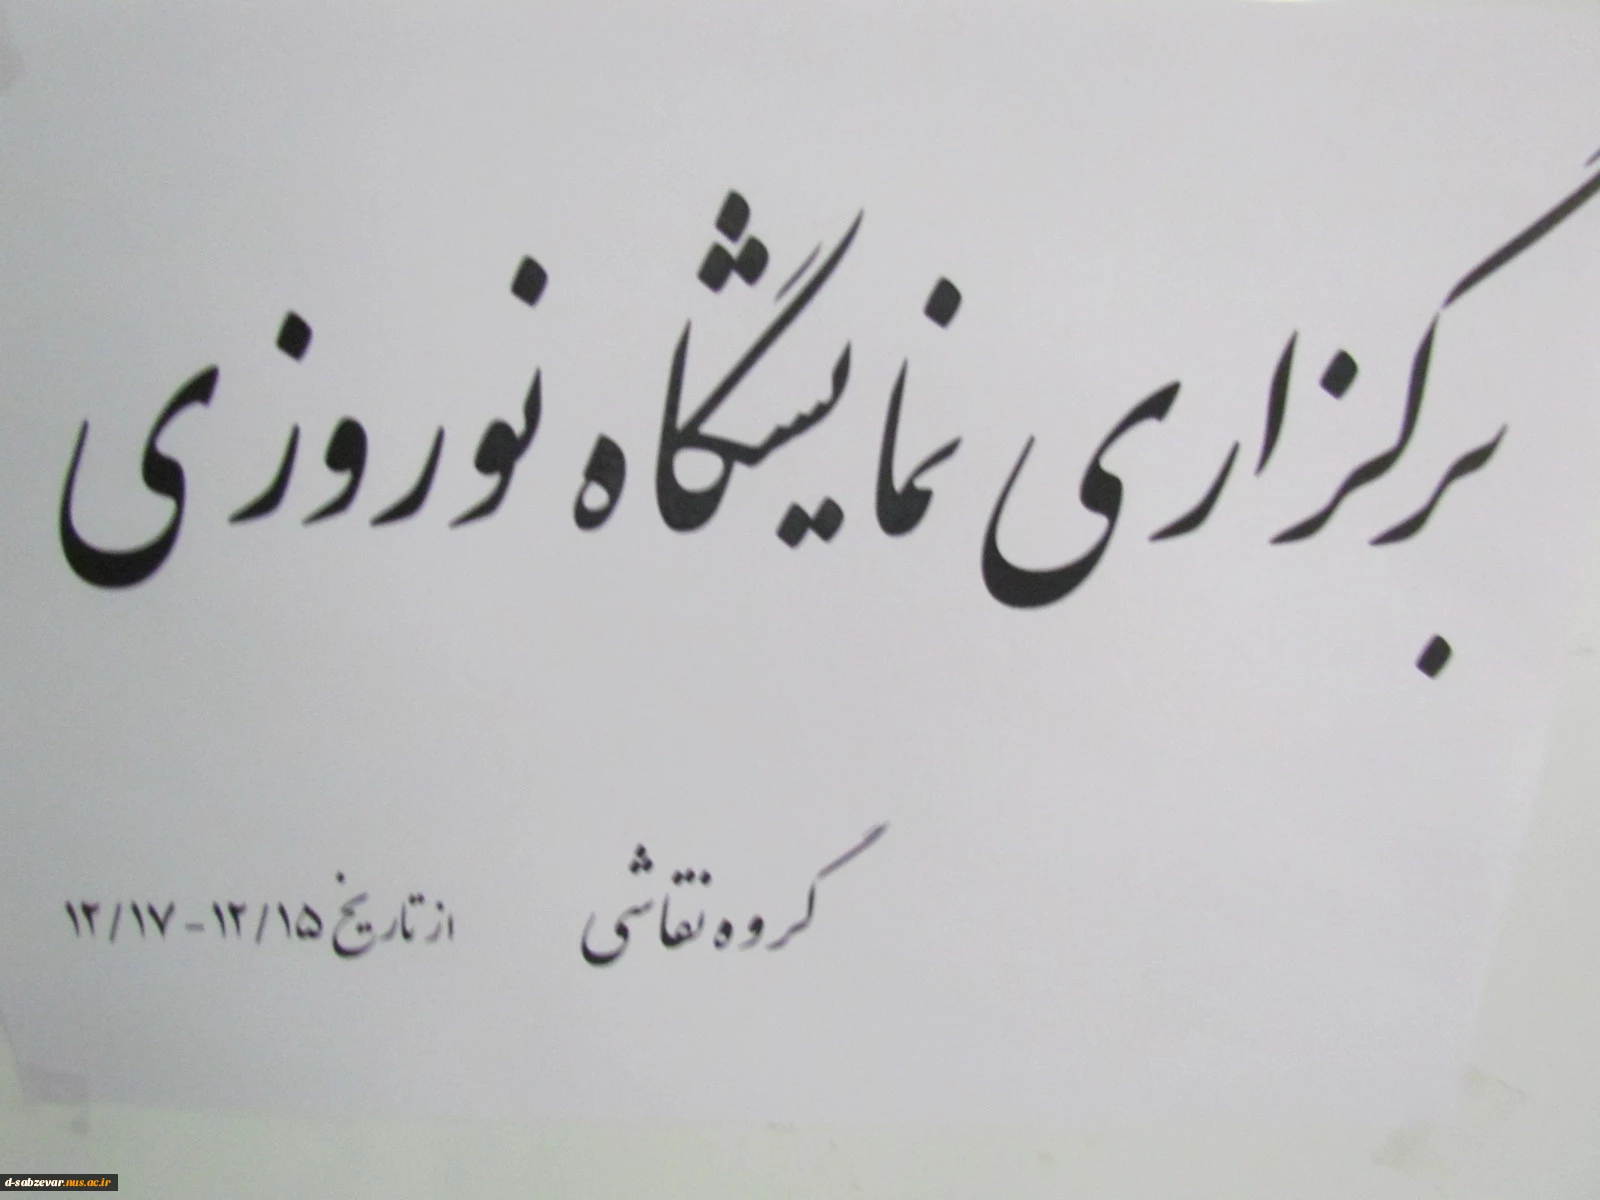 برگزاری نمایشگاه نوروزی
گروه نقاشی از تاریخ ۱۲/۱۵ - ۱۲/۱۷
d-sabzevar.nus.ac.ir